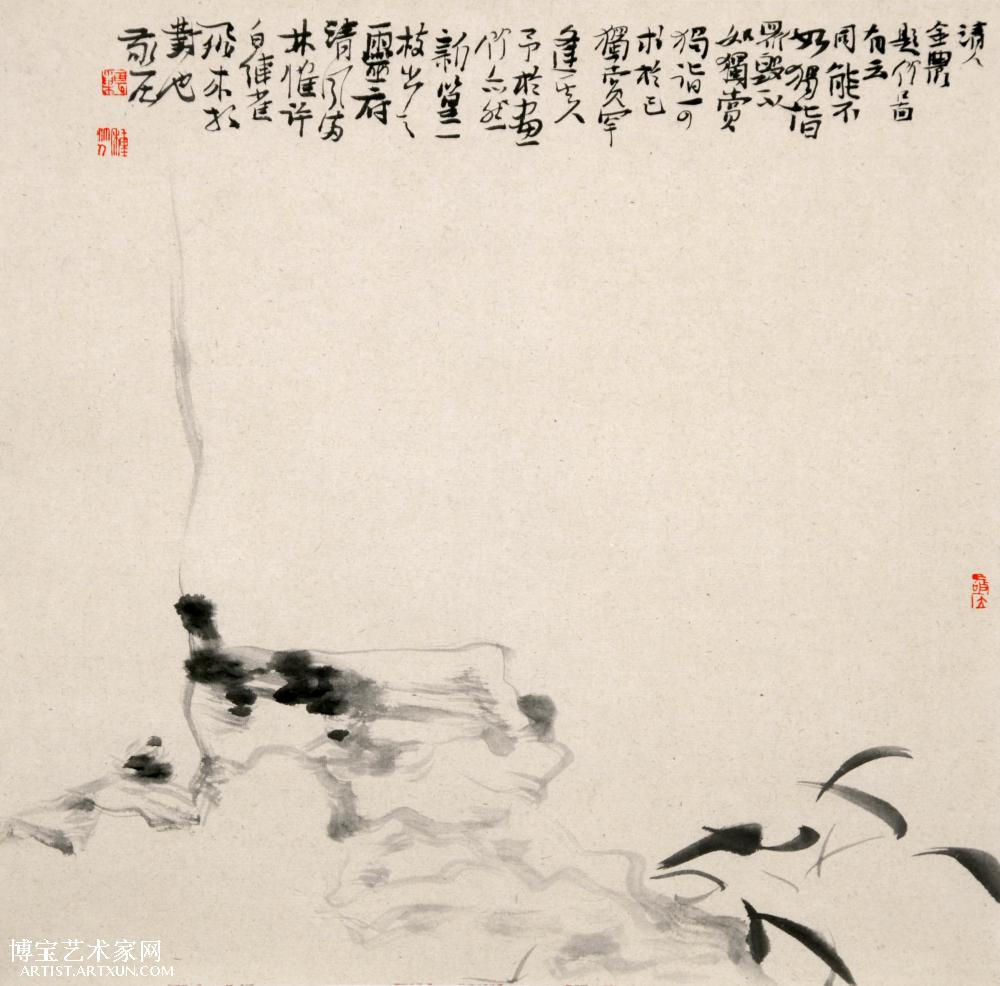 清人
金農
題竹圖
有云
同能不
如獨詣
眾毀不
如獨賞
獨詣一可
求於己
獨賞罕
逢其人
予於畫
竹亦然
新篁一
枝出之
靈府
清風滿
林惟許
白練雀
飛來相
對也
博宝艺术家网
ARTIST.ARTXUN.COM